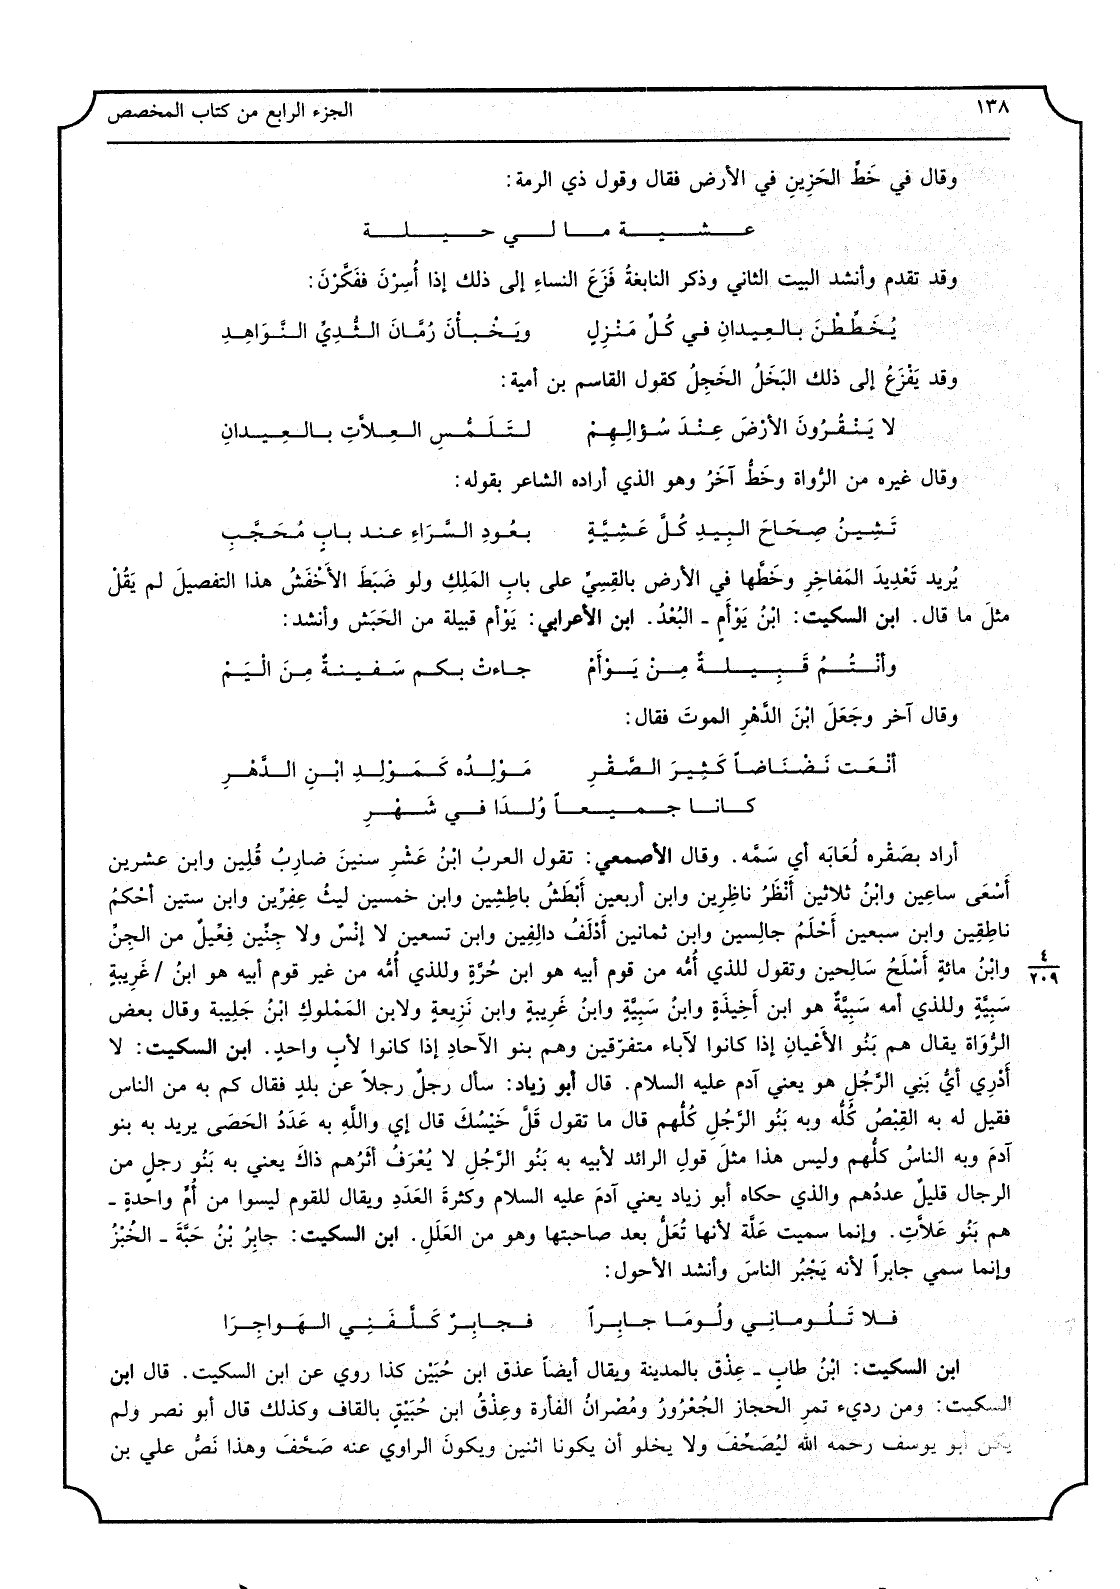 ١٣٨
الجزء الرابع من كتاب المخصص
وقال في خَطِّ الحَزِينِ في الأرض فقال وقول ذي الرمة:
عـشـيـة مـا لـي حـيـلـة
وقد تقدم وأنشد البيت الثاني وذكر النابغةُ فَزَعَ النساءِ إلى ذلك إذا أُسِرْنَ ففَكَّرْنَ:
يُخَطِّطْنَ بالعِيدانِ في كُلِّ مَنْزِلٍ ويَخْبأْنَ رُمَّانَ الثُّدِيِّ النَّوَاهِدِ
وقد يَفْزَعُ إلى ذلك البَخَلُ الخَجِلُ كقول القاسم بن أمية:
لا يَنْقُرُونَ الأرْضَ عِنْدَ سُؤالِهِمْ لتَلَمُّسِ العِلاَّتِ بالعِيدانِ
وقال غيره من الرُّواة وخَطٌّ آخَرُ وهو الذي أراده الشاعر بقوله:
تَشِينُ صِحَاحَ البِيدِ كُلَّ عَشِيَّةٍ بعُودِ السَّرَاءِ عند بابٍ مُحَجَّبِ
يُريد تَعْدِيدَ المَفاخِرِ وخَطَّها في الأرض بالقِسِيِّ على بابِ المَلِكِ ولو ضَبَطَ الأخْفَشُ هذا التفصيلَ لم يَقُلْ
مثلَ ما قال. ابن السكيت: ابْنُ يَوْأَمٍ ـ البُعْدُ. ابن الأعرابي: يَوْأم قبيلة من الحَبَش وأنشد:
وأنْتُمُ قَبِيلةٌ مِنْ يَوْأَمْ جاءتْ بكم سَفينةٌ مِنَ الْيَمْ
وقال آخر وجَعَلَ ابْنَ الدَّهْرِ الموتَ فقال:
أنْعَت نَضْنَاضاً كَثِيرَ الصَّقْرِ مَوْلِدُه كَمَوْلِدِ ابْنِ الدَّهْرِ
كانا جميعاً وُلدَا في شَهْرِ
أراد بصَقْره لُعَابَه أي سَمَّه. وقال الأصمعي: تقول العربُ ابْنُ عَشْرِ سنينَ ضارِبُ قُلِين وابن عشرين
أَسْعَى ساعِين وابْنُ ثلاثين أَنْظَرُ ناظِرِين وابن أربعين أَبْطَشُ باطِشِين وابن خمسين ليثُ عِفِرِّين وابن ستين أحْكمُ
ناطِقِين وابن سبعين أَحْلَمُ جالِسين وابن ثمانين أَدْلَفُ دالِفِين وابن تسعين لا إنْسٌ ولا جِنِّين فِعِّيلٌ من الجِنِّ
وابْنُ مائةٍ أَسْلَحُ سَالِحين وتقول للذي أُمُّه من قوم أبيه هو ابن حُرَّةٍ وللذي أُمُّه من غير قوم أبيه هو ابنُ / غَرِيبةٍ
٤
٢٠٩
سَبِيَّةٍ وللذي أمه سَبِيَّةٌ هو ابن أَخِيذَةٍ وابنُ سَبِيَّةٍ وابنُ غَرِيبةٍ وابن نَزِيعةٍ ولابن المَمْلوكِ ابْنُ جَلِيبة وقال بعض
الرُّوَاة يقال هم بَنُو الأَعْيانِ إذا كانوا لآباء متفرّقين وهم بنو الآحادِ إذا كانوا لأبٍ واحدٍ. ابن السكيت: لا
أَدْرِي أيُّ بَنِي الرَّجُلِ هو يعني آدم عليه السلام. قال أبو زياد: سأل رجلٌ رجلاً عن بلدٍ فقال كم به من الناس
فقيل له به القِبْصُ كُلُّه وبه بَنُو الرَّجُلِ كُلُّهم قال ما تقول قَلَّ خَيْسُكَ قال إي واللَّهِ به عَدَدُ الحَصَى يريد به بنو
آدمَ وبه الناسُ كلُّهم وليس هذا مثلَ قولِ الرائد لأبيه به بَنُو الرَّجُلِ لا يُعْرَفُ أثَرُهم ذاكَ يعني به بَنُو رجلٍ من
الرجال قليلٌ عددُهم والذي حكاه أبو زياد يعني آدمَ عليه السلام وكثرةَ العَدَدِ ويقال للقوم ليسوا من أُمٍّ واحدةٍ ـ
هم بَنُو عَلاَّتٍ. وإنما سميت عَلَّة لأنها تُعَلُّ بعد صاحبتها وهو من العَلَلِ. ابن السكيت: جابِرُ بْنُ حَبَّةَ ـ الخُبْزُ
وإنما سمي جابراً لأنه يَجْبُر الناسَ وأنشد الأحول:
فلا تَلُومانِي ولُومَا جابِراً فجابِرٌ كَلَّفَنِي الهَواجِرَا
ابن السكيت: ابْنُ طابٍ ـ عِذْق بالمدينة ويقال أيضاً عذق ابن حُبَيْن كذا روي عن ابن السكيت. قال ابن
السكيت: ومن رديء تمرِ الحجاز الجُعْرُورُ ومُصْرانُ الفأرة وعِذْقُ ابن حُبَيْقٍ بالقاف وكذلك قال أبو نصر ولم
يكن أبو يوسف رحمه الله ليُصَحِّفَ ولا يخلو أن يكونا اثنين ويكونَ الراوي عنه صَحَّفَ وهذا نَصُّ علي بن